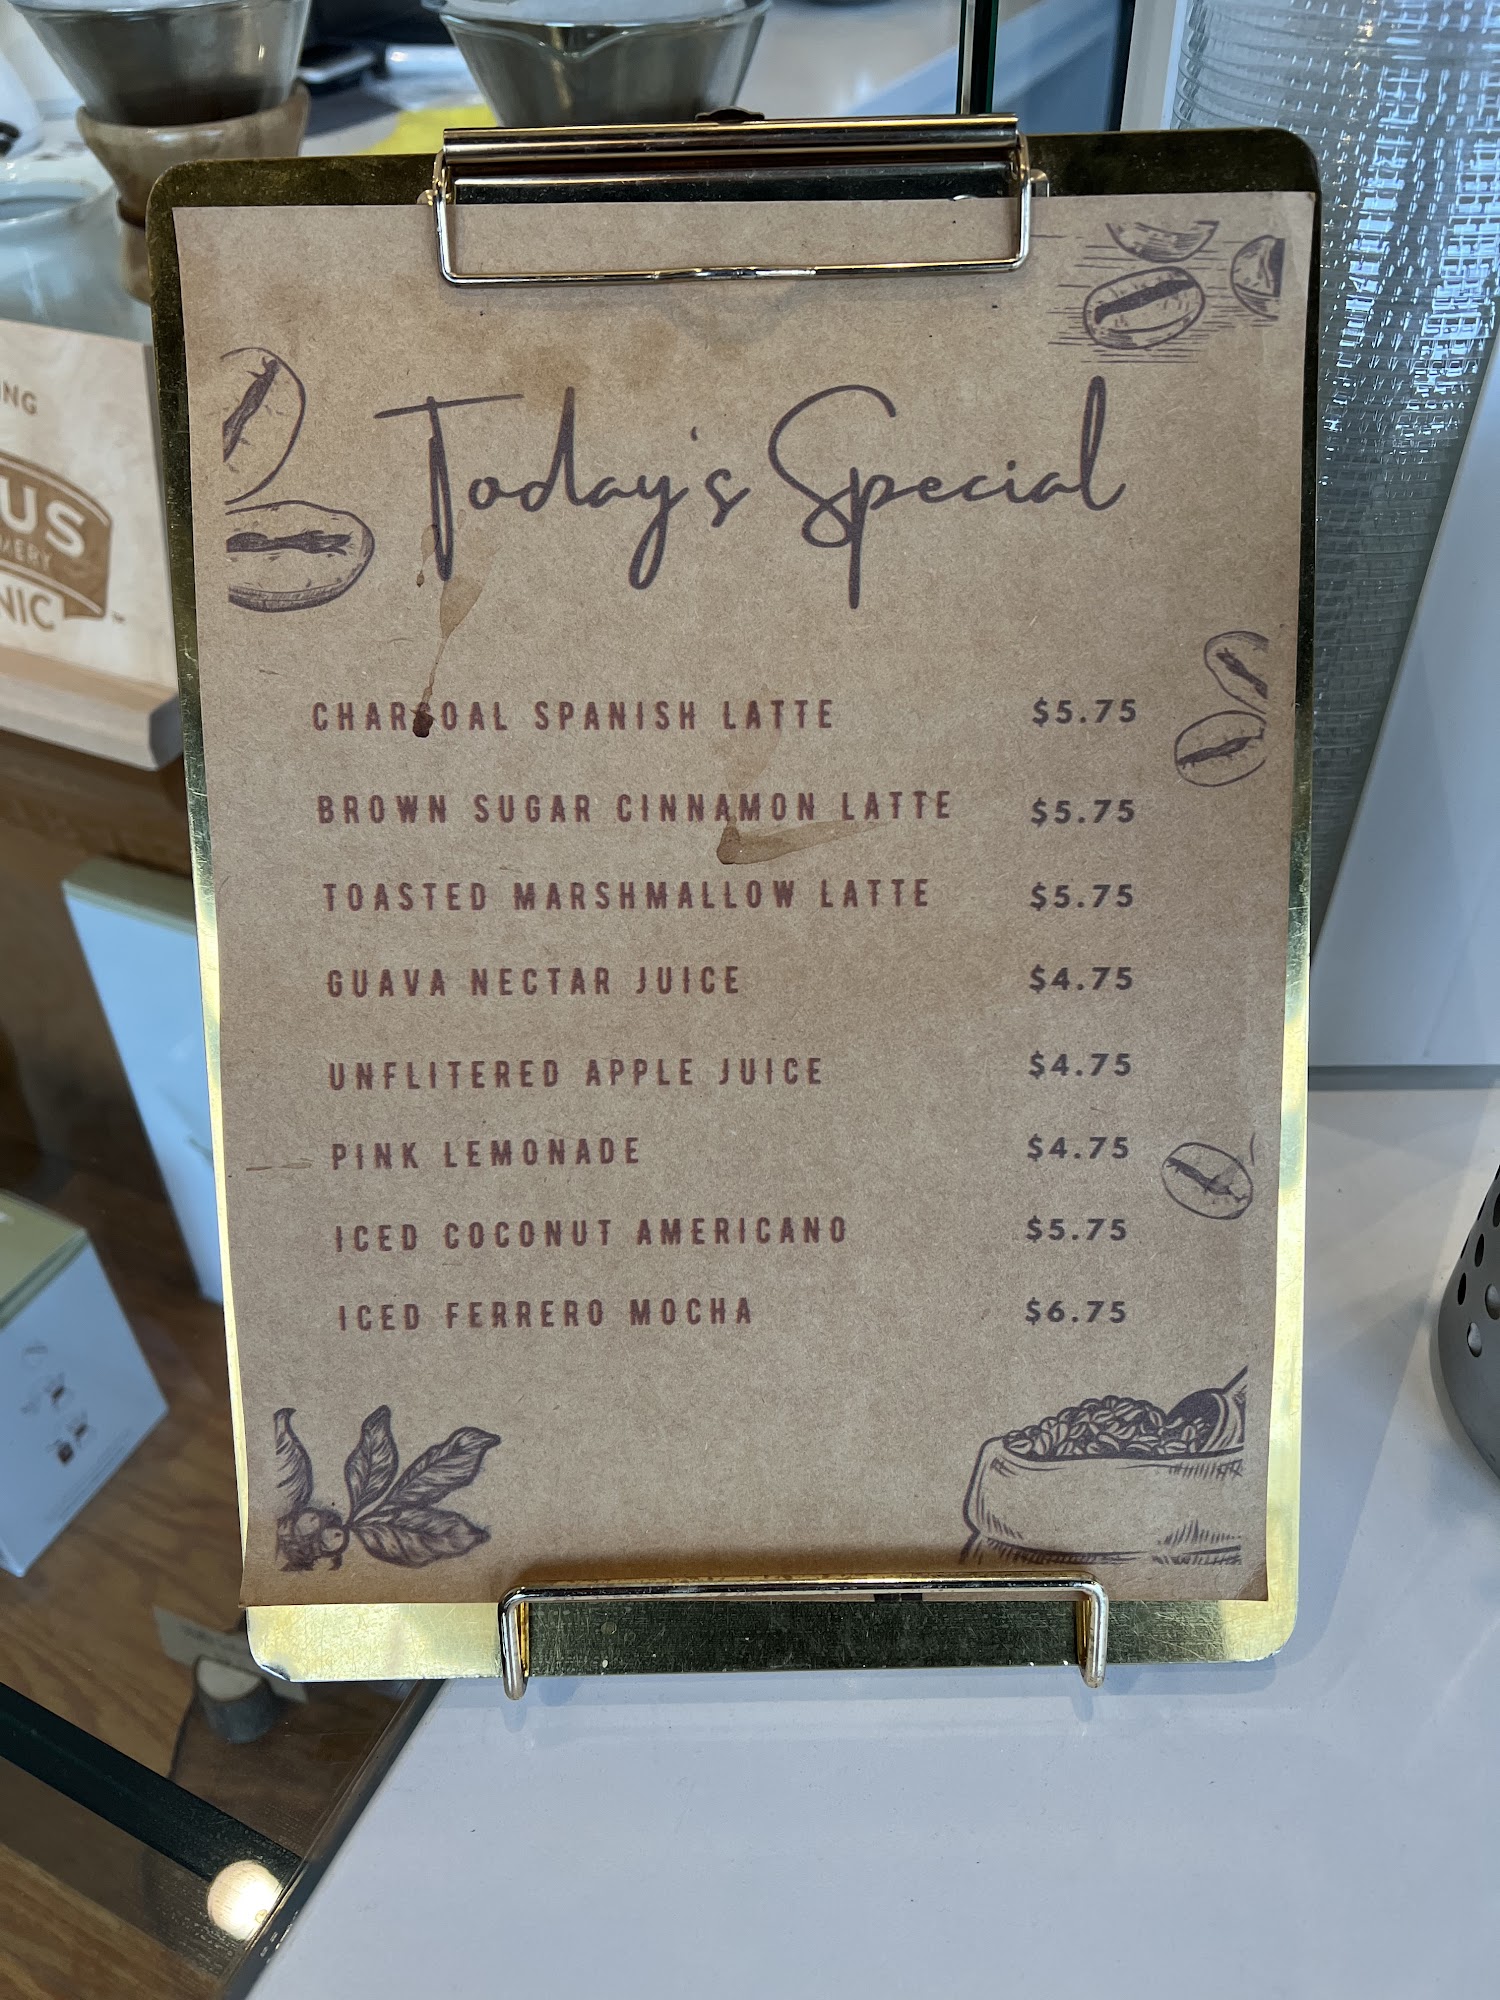 Today's Special
CHARCOAL SPANISH LATTE $5.75
BROWN SUGAR CINNAMON LATTE $5.75
TOASTED MARSHMALLOW LATTE $5.75
GUAVA NECTAR JUICE $4.75
UNFLITERED APPLE JUICE $4.75
PINK LEMONADE $4.75
ICED COCONUT AMERICANO $5.75
ICED FERRERO MOCHA $6.75